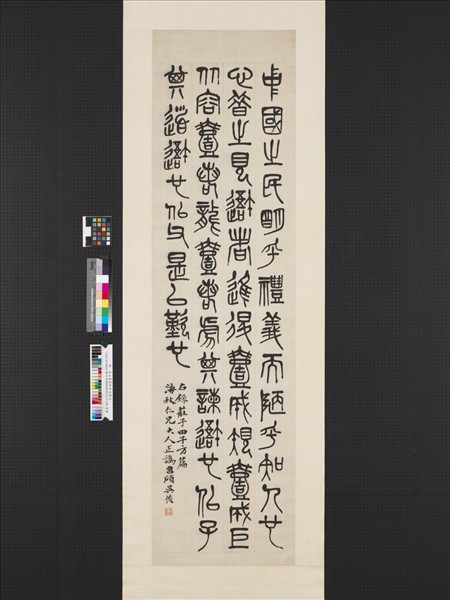 中國之民明乎禮義而陋乎知人
心昔之見吾者進退壹成規壹成巨
从容壹若龍壹若虎其諫吾也似子
其道吾也似父是以歎也
右錄莊子田子方篇
海秋仁兄大人正 昌碩吳俊